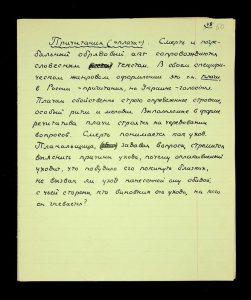 18 50
Причитания („плачи“). Смерть и погре-
бальный обрядовый акт сопровождаются
словесным текстом. В своем специфи-
ческом жанровом оформлении это т.н. плачи
в России – причитания, на Украине – голосiння.
Плачам свойственно строго определенное строение,
особый ритм и мелодии. Выполненные в форме
речитатива плачи строятся на чередовании
вопросов. Смерть понимается как уход.
Плакальщица, задавая вопросы, стремится
выяснить причины ухода, почему оплакиваемый
уходит, что побудило его покинуть близких,
не вызван ли уход нанесенной ему обидой,
с чьей стороны, кто виновник его ухода, на кого
он гневается?